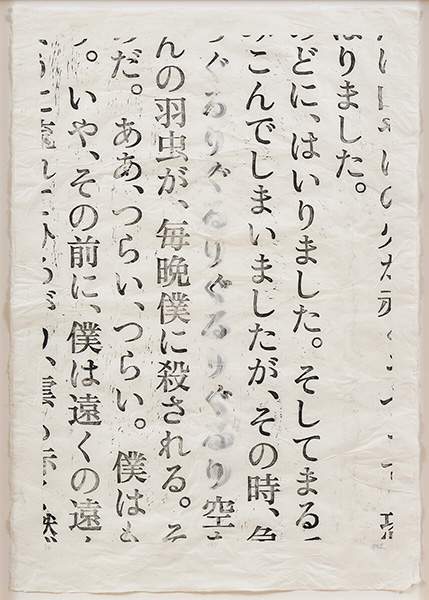 りました。
のどに、はいりました。そしてまる
こんでしまいましたが、その時、
ぐるりぐるりぐるりぐるり空
んの羽虫が、毎晩僕に殺される。そ
だ。ああ、つらい、つらい。僕は
。いや、その前に、僕は遠くの遠